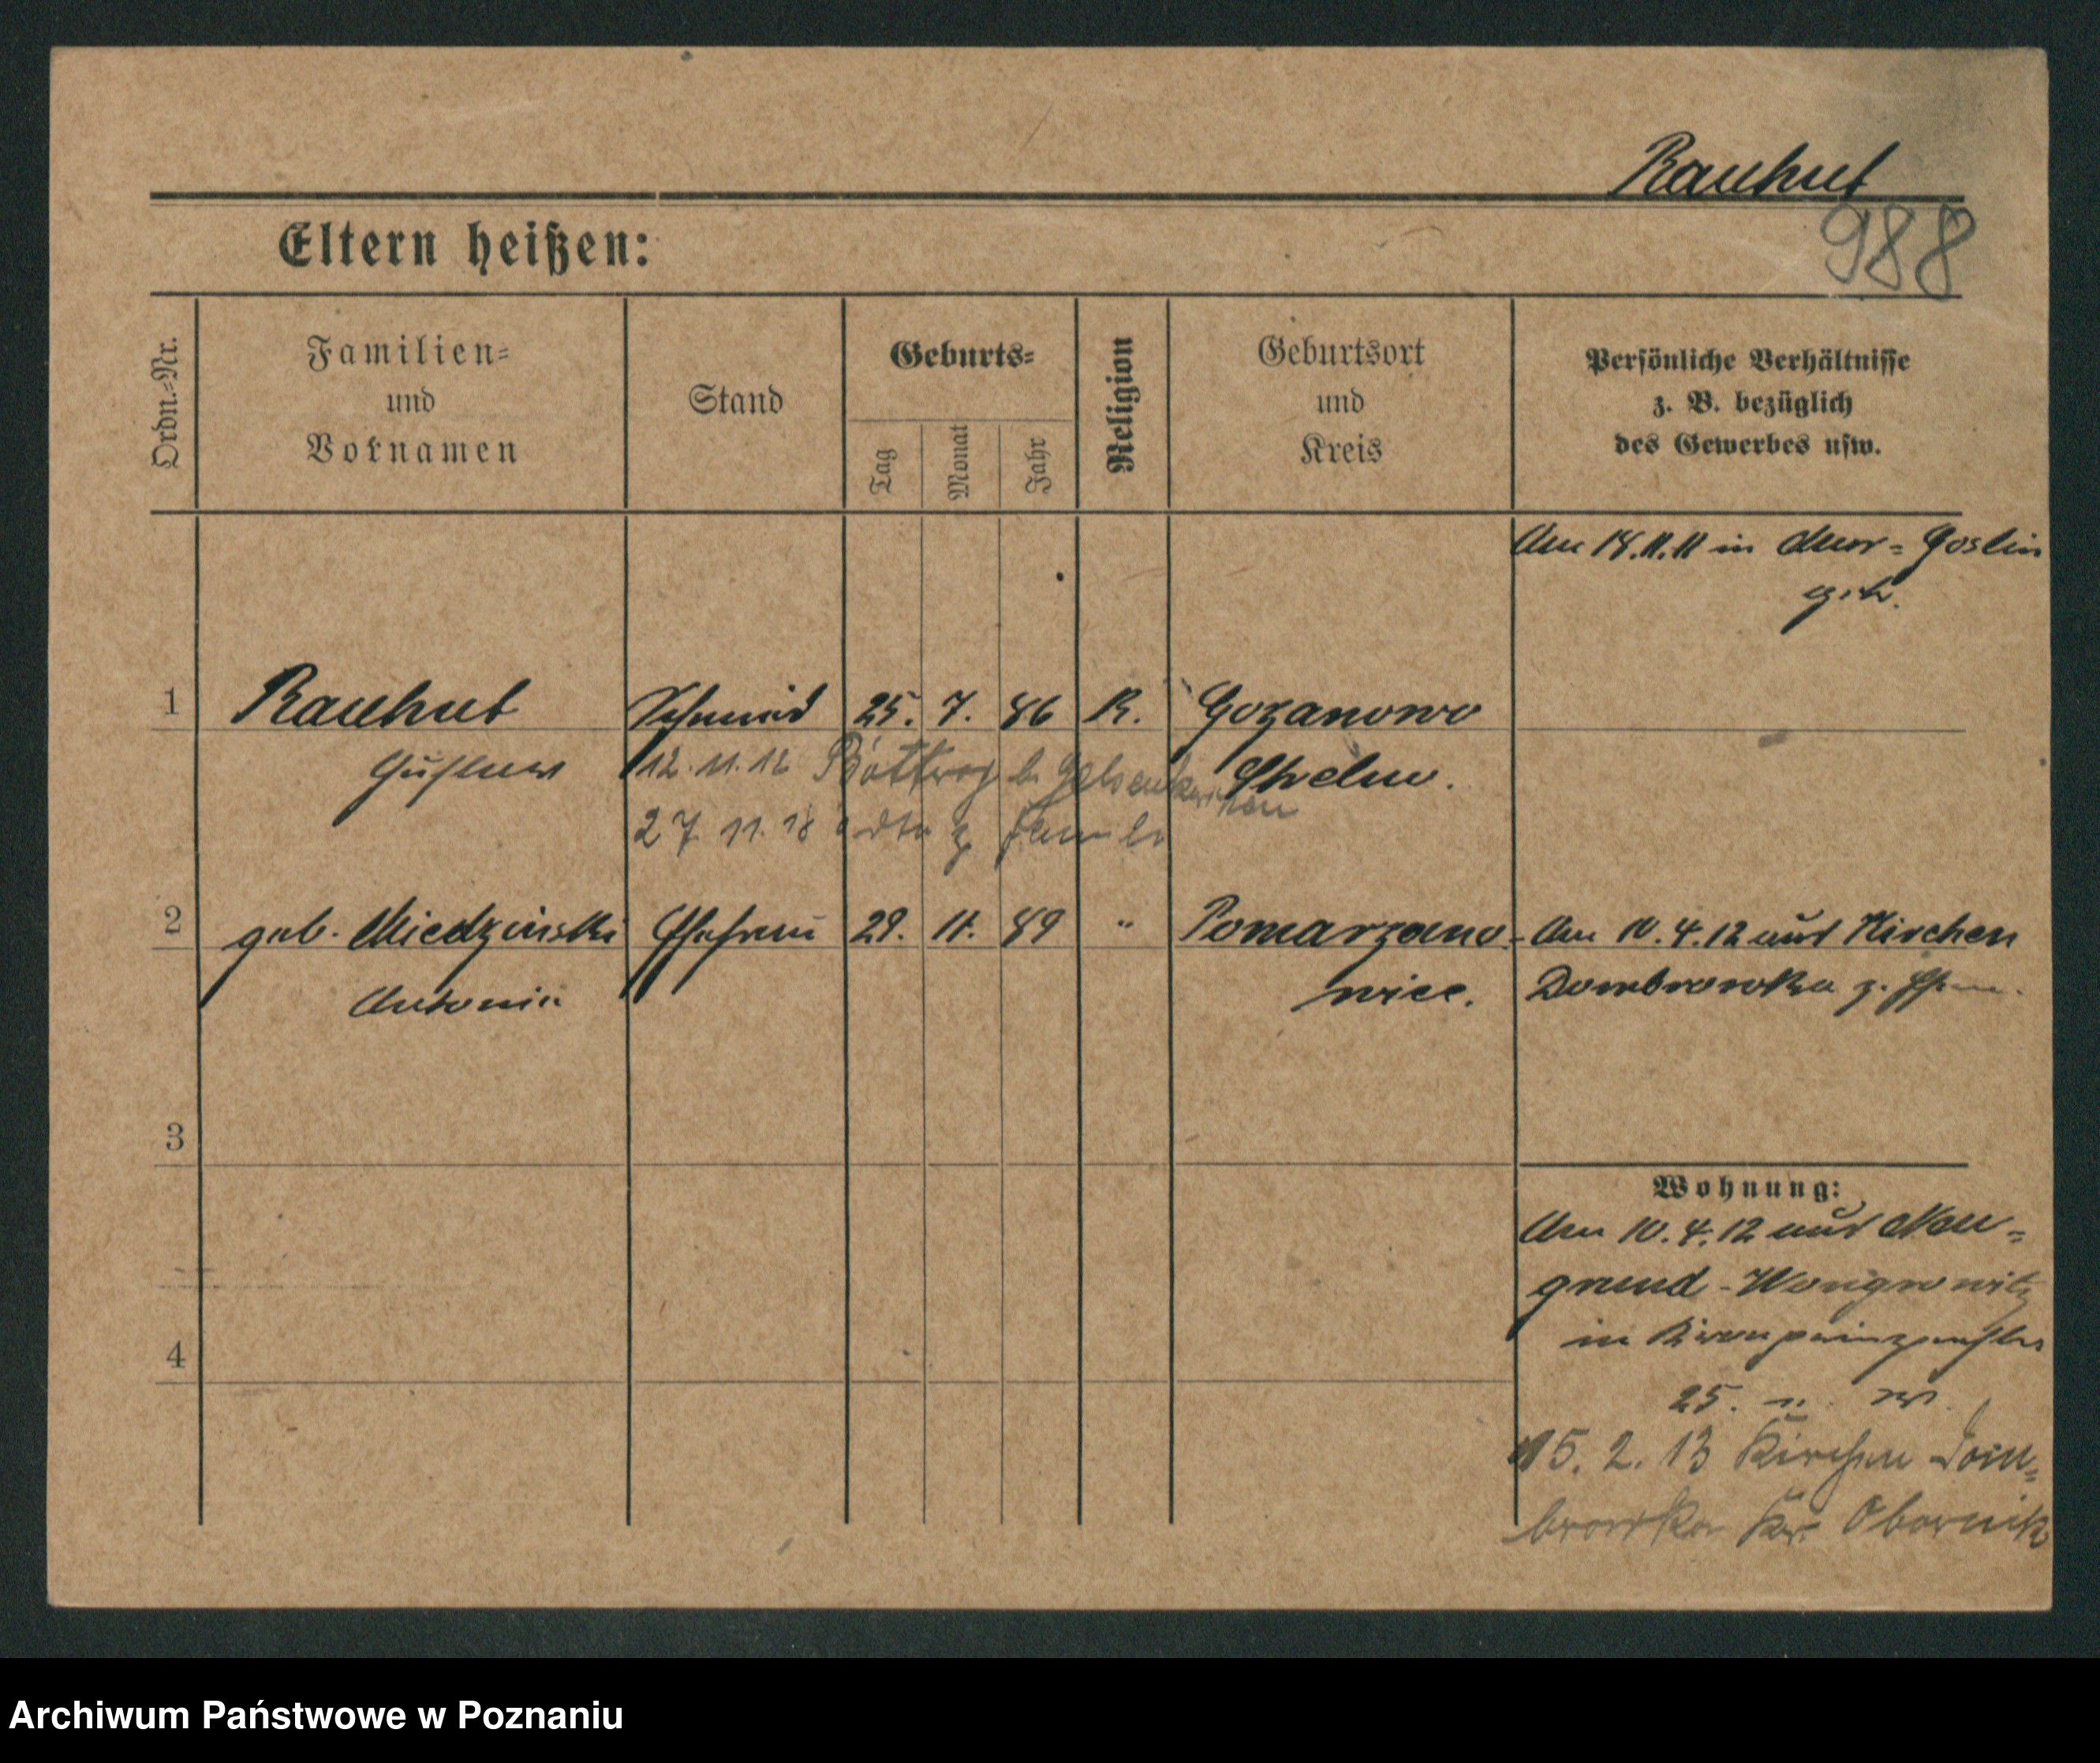 Rauhut
988
Eltern heißen:
Ordn.-Nr.
Familien-
und
Vornamen
Stand
Geburts-
Tag
Monat
Jahr
Religion
Geburtsort
und
Kreis
Persönliche Verhältnisse
z. B. bezüglich
des Gewerbes usw.
Am 18.11.11 in Mur-Goslin
geh.
1 Rauhut Schmied 25. 7. 86 K. Gozanowo
Gustav Strelno.
12.11.12 Bottrop b. Gelsenkirchen
27. 11. 18
2 geb. Miedzinski Ehefrau 29. 11. 89 " Pomarzano-
Antonia wice.
Am 10.4.12 aus Kirchen
Dombrowka z. Ehem.
3
4
Wohnung:
Am 10.4.12 aus Neu-
grund-Wongrowitz
in Kronprinzenstr.
25.
15. 2. 13 Kirchen Dom-
browka Kr. Obornik
Archiwum Państwowe w Poznaniu